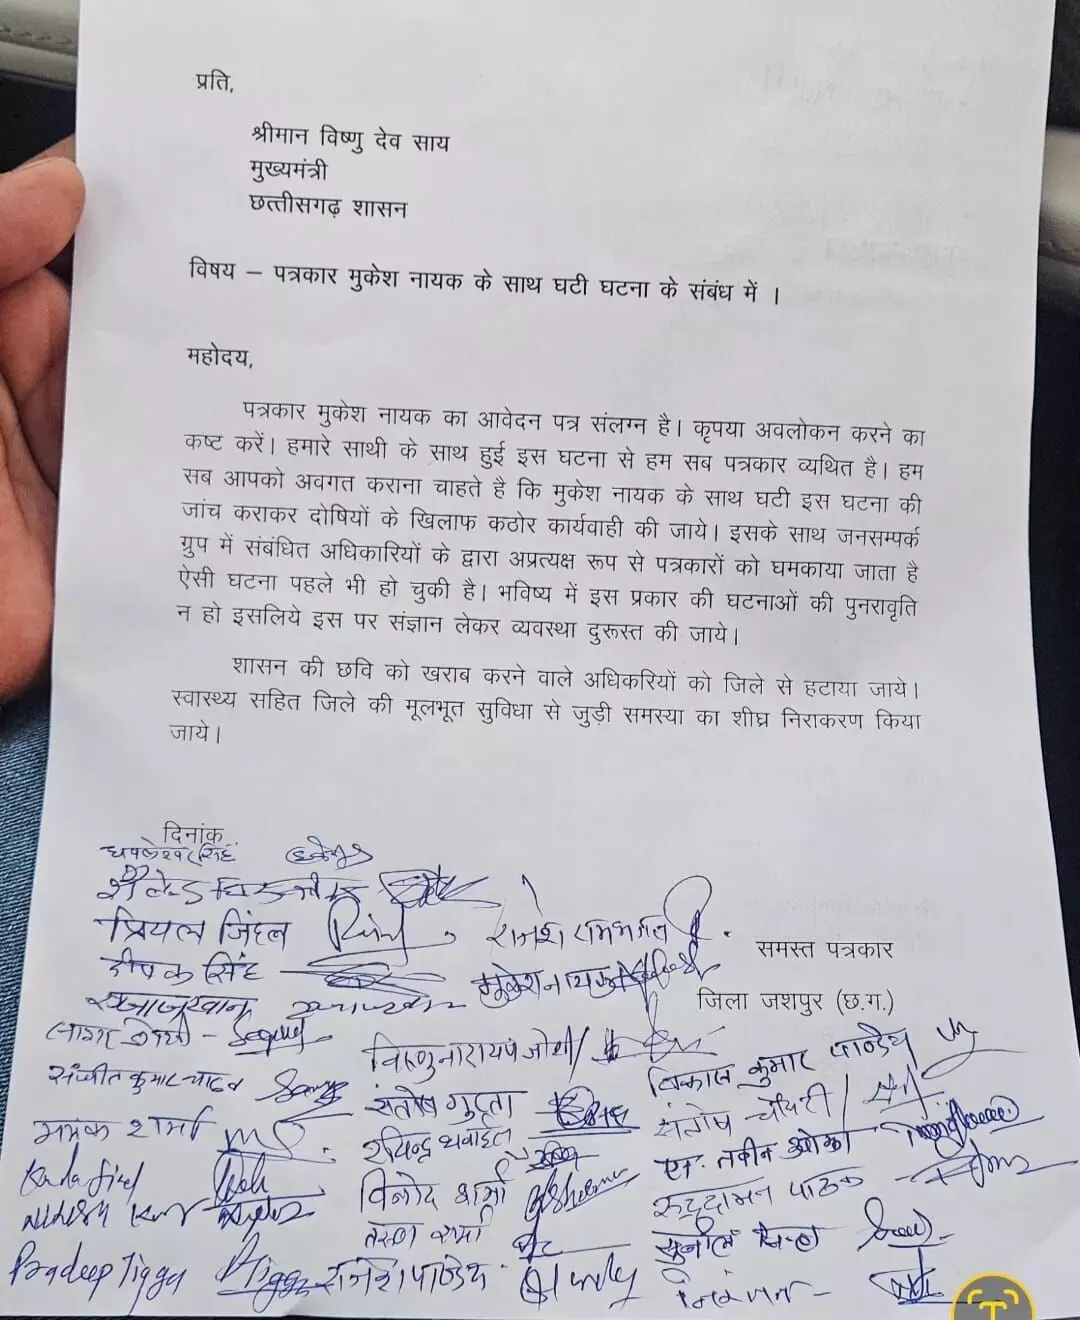 प्रति,
श्रीमान विष्णु देव साय
मुख्यमंत्री
छत्तीसगढ़ शासन
विषय – पत्रकार मुकेश नायक के साथ घटी घटना के संबंध में ।
महोदय,
पत्रकार मुकेश नायक का आवेदन पत्र संलग्न है। कृपया अवलोकन करने का
कष्ट करें। हमारे साथी के साथ हुई इस घटना से हम सब पत्रकार व्यथित है। हम
सब आपको अवगत कराना चाहते है कि मुकेश नायक के साथ घटी इस घटना की
जांच कराकर दोषियों के खिलाफ कठोर कार्यवाही की जाये। इसके साथ जनसम्पर्क
ग्रुप में संबंधित अधिकारियों के द्वारा अप्रत्यक्ष रूप से पत्रकारों को घमकाया जाता है
ऐसी घटना पहले भी हो चुकी है। भविष्य में इस प्रकार की घटनाओं की पुनरावृति
न हो इसलिये इस पर संज्ञान लेकर व्यवस्था दुरूस्त की जाये।
शासन की छवि को खराब करने वाले अधिकरियों को जिले से हटाया जाये।
स्वास्थ्य सहित जिले की मूलभूत सुविधा से जुड़ी समस्या का शीघ्र निराकरण किया
जाये।
दिनांक
प्रियल जिंदल
राजेश
समस्त पत्रकार
दीपक सिंह
मुकेश नायक
जिला जशपुर (छ.ग.)
विष्णुनारायण जोशी
विकास कुमार पाण्डेय
संजीत कुमार यादव
संतोष गुप्ता
संतोष चौधरी
मयंक शर्मा
रविन्द्र थवाईत
एम. नवीन ओझा
विनोद शर्मा
रूद्रदामन पाठक
शर्मा
सुनील सिन्हा
Pradeep Tigga
राजेश पाण्डेय
निरंजन